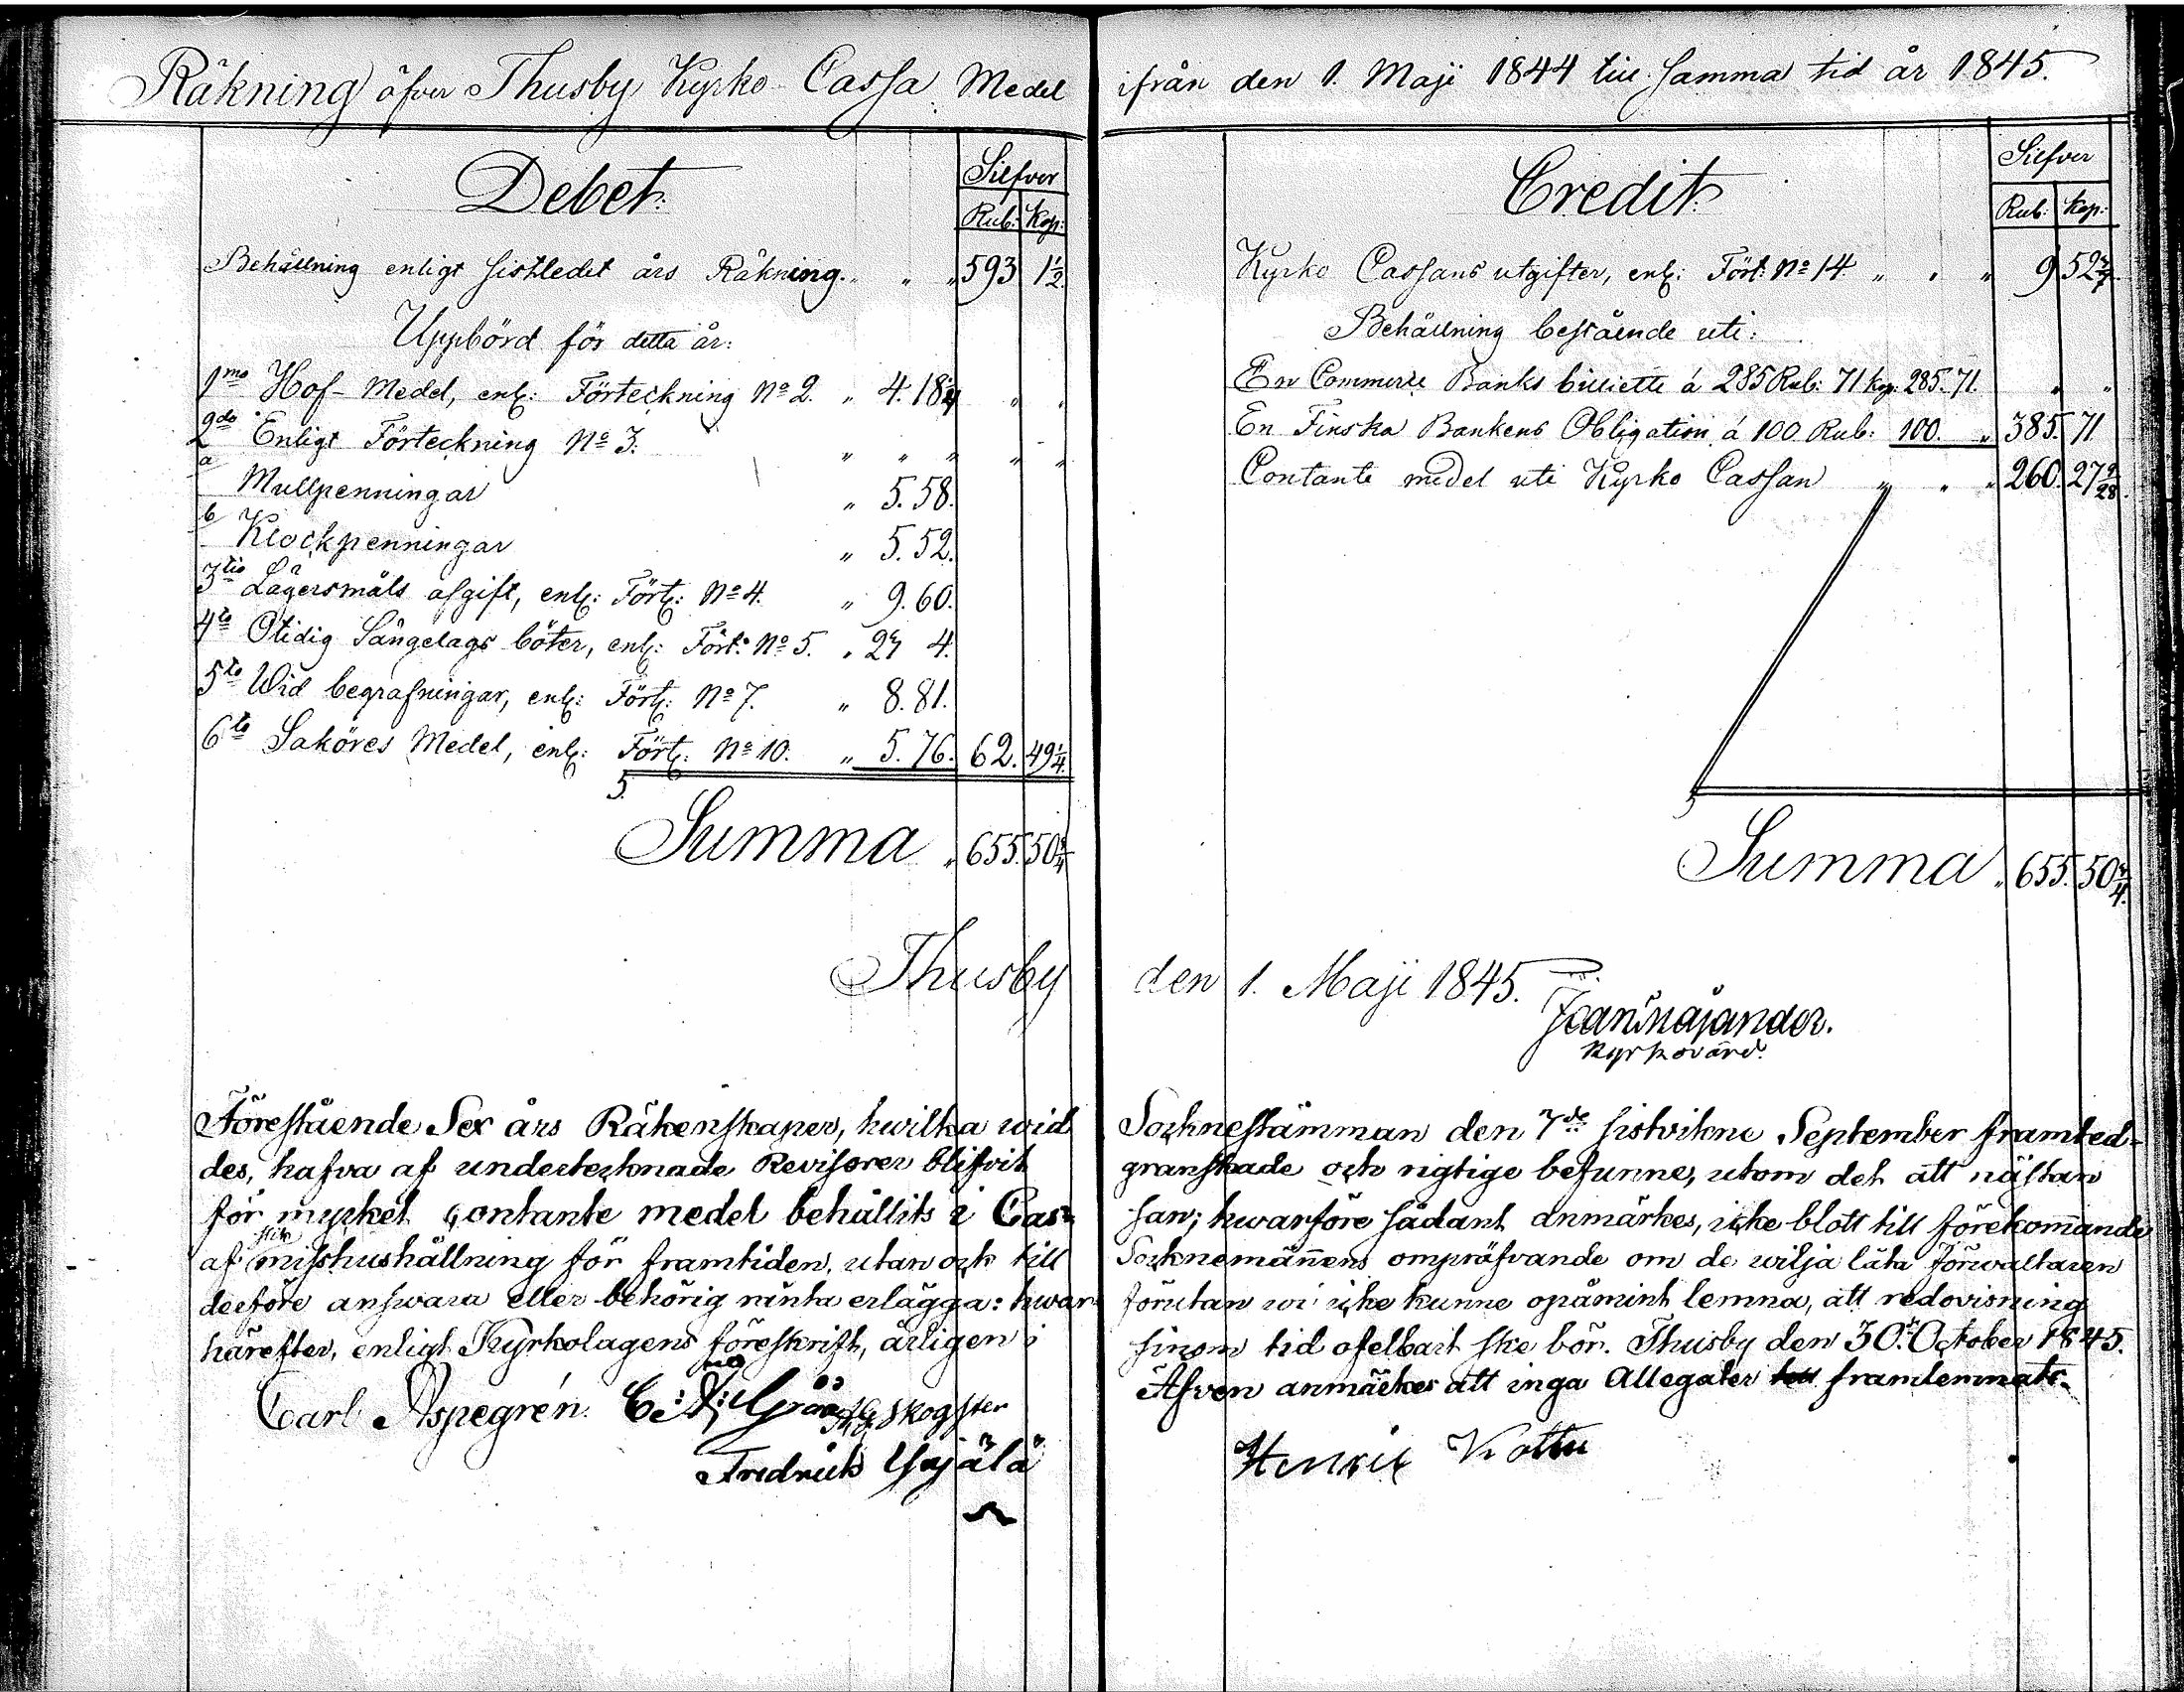 Räkning öfver Thusby Kyrko Cassa Medel
Debet.
Silfver
Rub: Kop:
Behållning enligt sistledet års Räkning. " " " 593 1 1/2.
Uppbörd för detta år:
1mo Hof-Medel, enl: Förteckning No 2. " 4. 18 1/4 " "
2do Enligt Förteckning No 3. " " " " "
a Mullpenningar " 5. 58.
b Klockpenningar " 5. 52.
3tio Lägersmåls afgift, enl: Förtg: No 4. " 9. 60.
4to Otidig Sängelags böter, enl: Fört: No 5. " 23 4.
5to Wid begrafningar, enl: Förtg: No 7. " 8. 81.
6to Saköres Medel, enl: Förtg: No 10. " 5. 76. 62. 49 1/4.
Summa " 655. 50 3/4
Thusby
Förestående Sex års Räkenskaper, hwilka wid
des, hafva af undertecknade Revisorer blifvit
för mycket contante medel behållits i Cas=
af misshushållning för framtiden, utan ock till
derföre answara eller behörig ränta erlägga: hwar
härefter, enligt Kyrkolagens föreskrift, årligen i
Carl Aspegrén. C: Gråå Skogster
Fredrick Yrjälä
ifrån den 1. Maji 1844 till samma tid år 1845.
Credit
Silfver
Rub: Kop:
Kyrko Cassans utgifter, enl: Fört: No 14 " " " 9 52 5/7
Behållning bestående uti:
En Commerce Banks billiette á 285 Rub: 71 kop: 285. 71. " "
En Finska Bankens Obligation á 100 Rub: 100. " 385. 71
Contante medel uti Kyrko Cassan " " " 260. 27 1/28.
Summa " 655. 50 3/4.
den 1. Maji 1845.
Kyrkovärd.
Socknestämman den 7de sistvikne September framted=
granskade och rigtige befunne, utom det att nästan
san; hwarföre sådant anmärkes, icke blott till förekommande
Socknemännens ompröfvande om de wilja låta Förwaltaren
förutan wi icke kunne opåmint lemna, att redovisning
sinom tid ofelbart ske bör. Thusby den 30. October 1845.
Äfven anmärkes att inga Allegater framlemnats.
Henrik Kottu